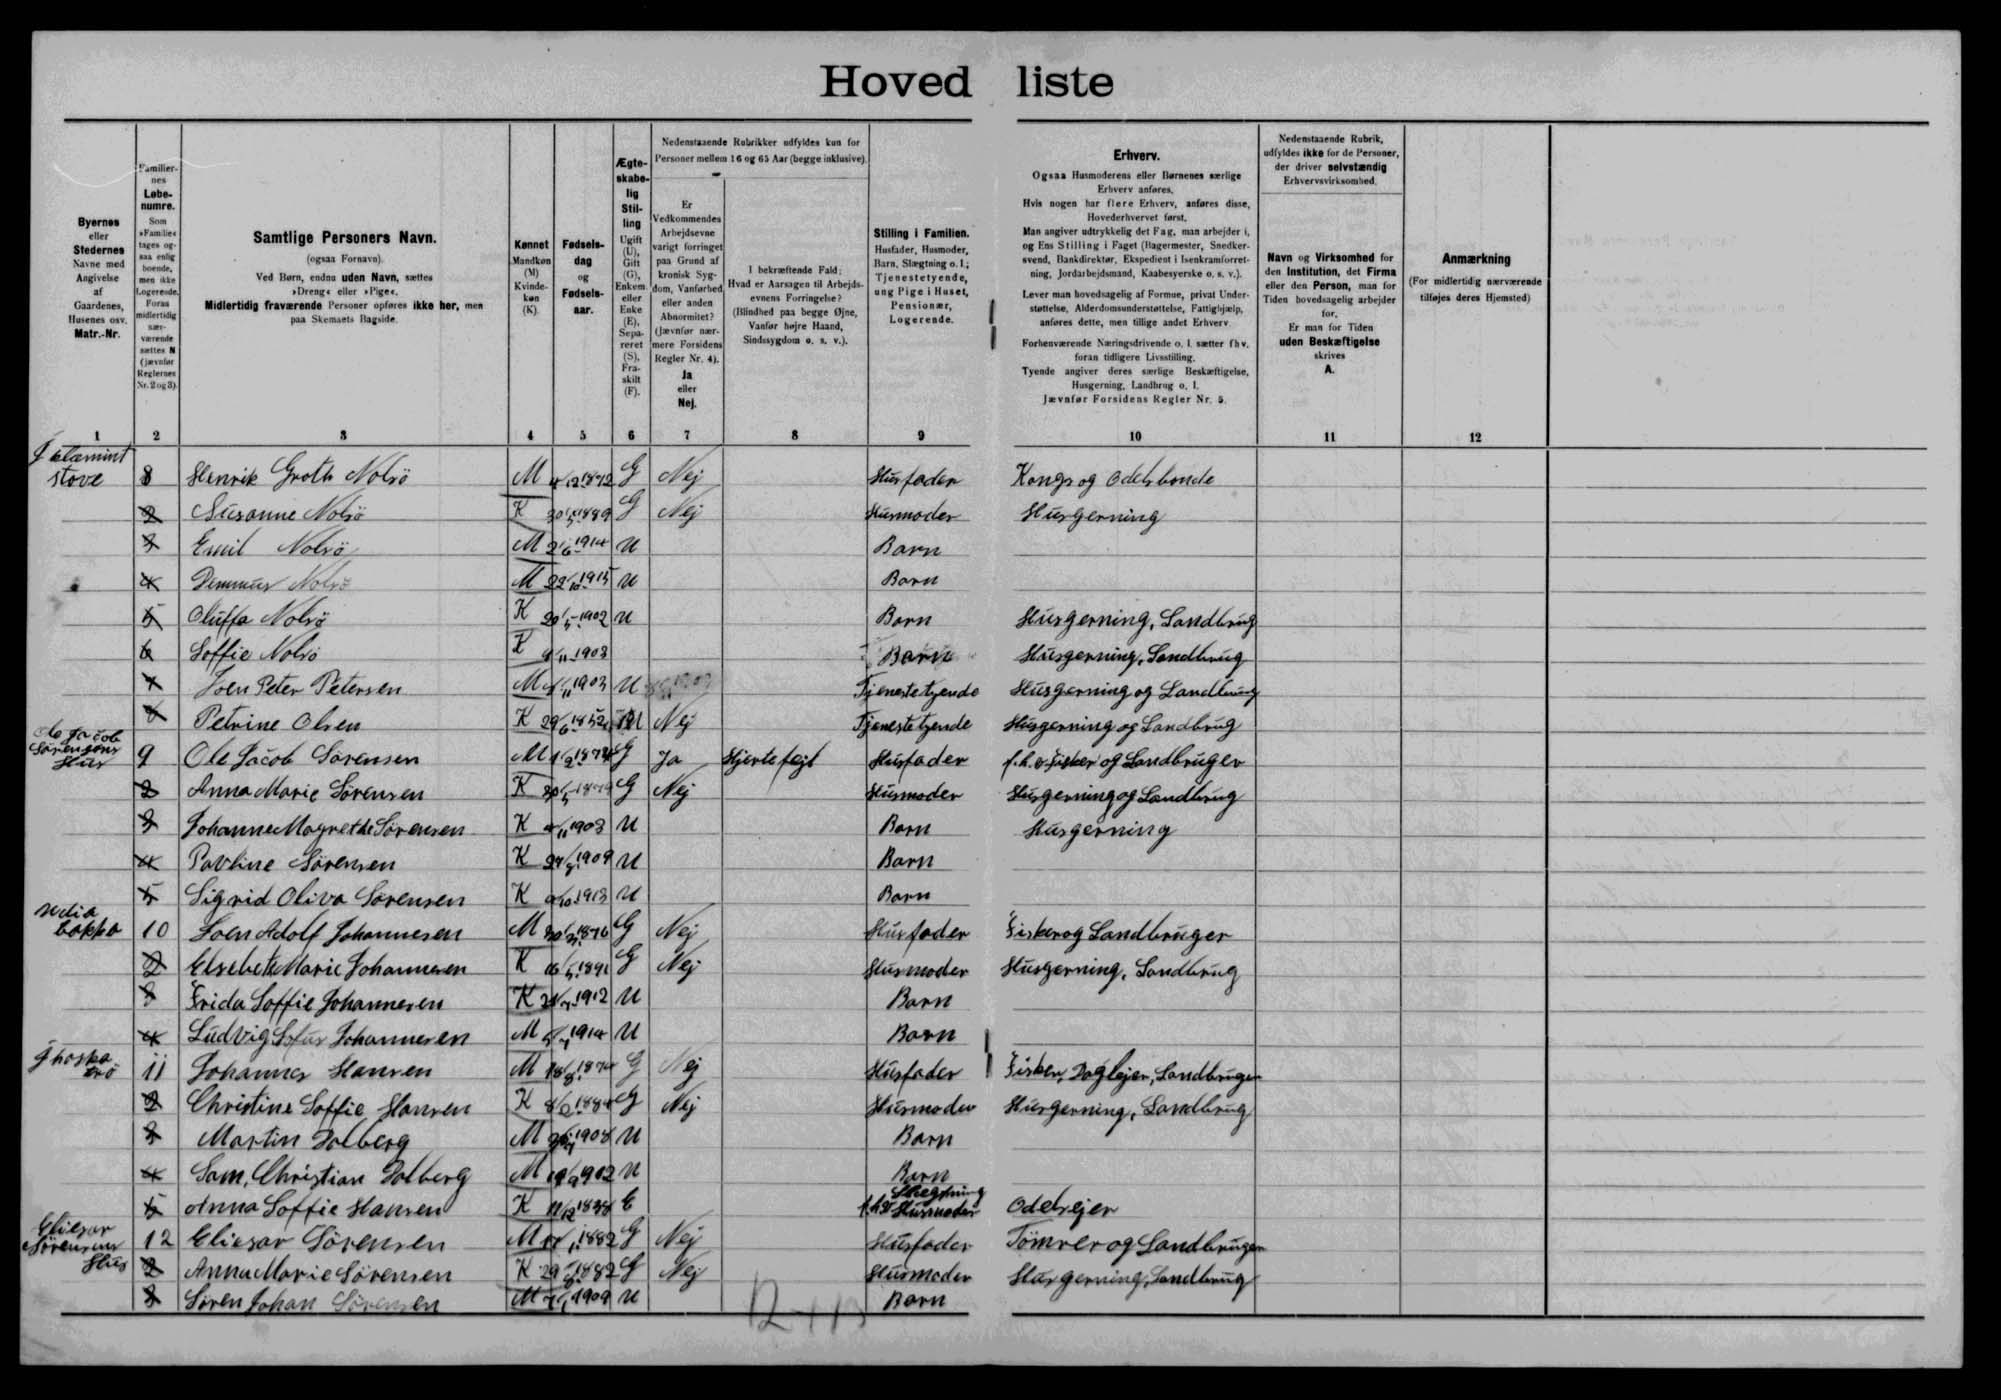 Hoved liste
Byernes eller Stedernes Navne med Angivelse af Gaardenes, Husenes osv. Matr.-Nr.
Familiernes Løbenumre. Som »Familie« tages ogsaa enlig boende, men ikke Logerende. Foras midlertidig nærværende sættes N (jævnfør Reglernes Nr. 2 og 3).
Samtlige Personers Navn. (ogsaa Fornavn). Ved Børn, endnu uden Navn, sættes »Dreng« eller »Pige«. Midlertidig fraværende Personer opføres ikke her, men paa Skemaets Bagside.
Kønnet Mandkøn (M) Kvindekøn (K).
Fødselsdag og Fødselsaar.
Ægteskabelig Stilling Ugift (U), Gift (G), Enkem. eller Enke (E), Separeret (S), Fraskilt (F).
Nedenstaaende Rubrikker udfyldes kun for Personer mellem 16 og 65 Aar (begge inklusive).
Er Vedkommendes Arbejdsevne varigt forringet paa Grund af kronisk Sygdom, Vanførhed eller anden Abnormitet? (Jævnfør nærmere Forsidens Regler Nr. 4). Ja eller Nej.
I bekræftende Fald: Hvad er Aarsagen til Arbejdsevnens Forringelse? (Blindhed paa begge Øjne, Vanfør højre Haand, Sindssygdom o. s. v.).
Stilling i Familien. Husfader, Husmoder, Barn, Slægtning o. l.; Tjenestetyende, ung Pige i Huset, Pensionær, Logerende.
Erhverv.
Ogsaa Husmoderens eller Børnenes særlige Erhverv anføres.
Hvis nogen har flere Erhverv, anføres disse, Hovederhvervet først.
Man angiver udtrykkelig det Fag, man arbejder i, og Ens Stilling i Faget (Bagermester, Snedkersvend, Bankdirektør, Ekspedient i Isenkramforretning, Jordarbejdsmand, Kaabesyerske o. s. v.).
Lever man hovedsagelig af Formue, privat Understøttelse, Alderdomsunderstøttelse, Fattighjælp, anføres dette, men tillige andet Erhverv.
Forhenværende Næringsdrivende o. l. sætter fhv. foran tidligere Livsstilling.
Tyende angiver deres særlige Beskæftigelse, Husgerning, Landbrug o. l.
Jævnfør Forsidens Regler Nr. 5.
Nedenstaaende Rubrik, udfyldes ikke for de Personer, der driver selvstændig Erhvervsvirksomhed.
Navn og Virksomhed for den Institution, det Firma eller den Person, man for Tiden hovedsagelig arbejder for.
Er man for Tiden uden Beskæftigelse skrives A.
Anmærkning (For midlertidig nærværende tilføjes deres Hjemsted)
1 2 3 4 5 6 7 8 9 10 11 12
stove 8 Henrik Groth Nolsö M 4/12 1872 G Nej Husfader Kongs og Odelsbonde
2 Susanne Nolsö K 30/5 1889 G Nej Husmoder Husgerning
3 Emil Nolsö M 2/6 1914 U Barn
4 Demmus Nolsö M 22/10 1915 U Barn
5 Oluffa Nolsö K 20/5 1902 U Barn Husgerning, Landbrug
6 Soffie Nolsö K 9/11 1903 Barn Husgerning, Landbrug
7 Joen Peter Petersen M 1903 U Tjenestetyende Husgerning og Landbrug
8 Petrine Olsen K 29/6 1852 U Nej Tjenestetyende Husgerning og Landbrug
Ole Jacob Sörensens Hus 9 Ole Jacob Sörensen M 1/2 1874 G Ja Hjertefejl Husfader f.h.v. Fisker og Landbruger
2 Anna Marie Sörensen K 30/5 1879 G Nej Husmoder Husgerning og Landbrug
3 Johanne Magrethe Sörensen K 4/11 1903 U Barn Husgerning
4 Pavline Sörensen K 1909 U Barn
5 Sigrid Oliva Sörensen K 1913 U Barn
nedia bakka 10 Joen Adolf Johannesen M 1876 G Nej Husfader Fisker og Landbruger
2 Elsebeth Marie Johannesen K 16/5 1891 G Nej Husmoder Husgerning, Landbrug
3 Frida Soffie Johannesen K 1912 U Barn
4 Ludvig Sofus Johannesen M 1914 U Barn
11 Johannes Hansen M 18/8 1874 G Nej Husfader Fisker, Daglejer, Landbruger
2 Christine Soffie Hansen K 1884 G Nej Husmoder Husgerning, Landbrug
3 Martin Dalberg M 1908 U Barn
4 Sam. Christian Dalberg M 19/9 1912 U Barn
5 Anna Soffie Hansen K 11/12 1838 E Slægtning f.h.v. Husmoder Odelsejer
Eliesar Sörensens Hus 12 Eliesar Sörensen M 1882 G Nej Husfader Tömrer og Landbruger
2 Anna Marie Sörensen K 1882 G Nej Husmoder Husgerning, Landbrug
3 Sören Johan Sörensen M 1909 U Barn
12+13